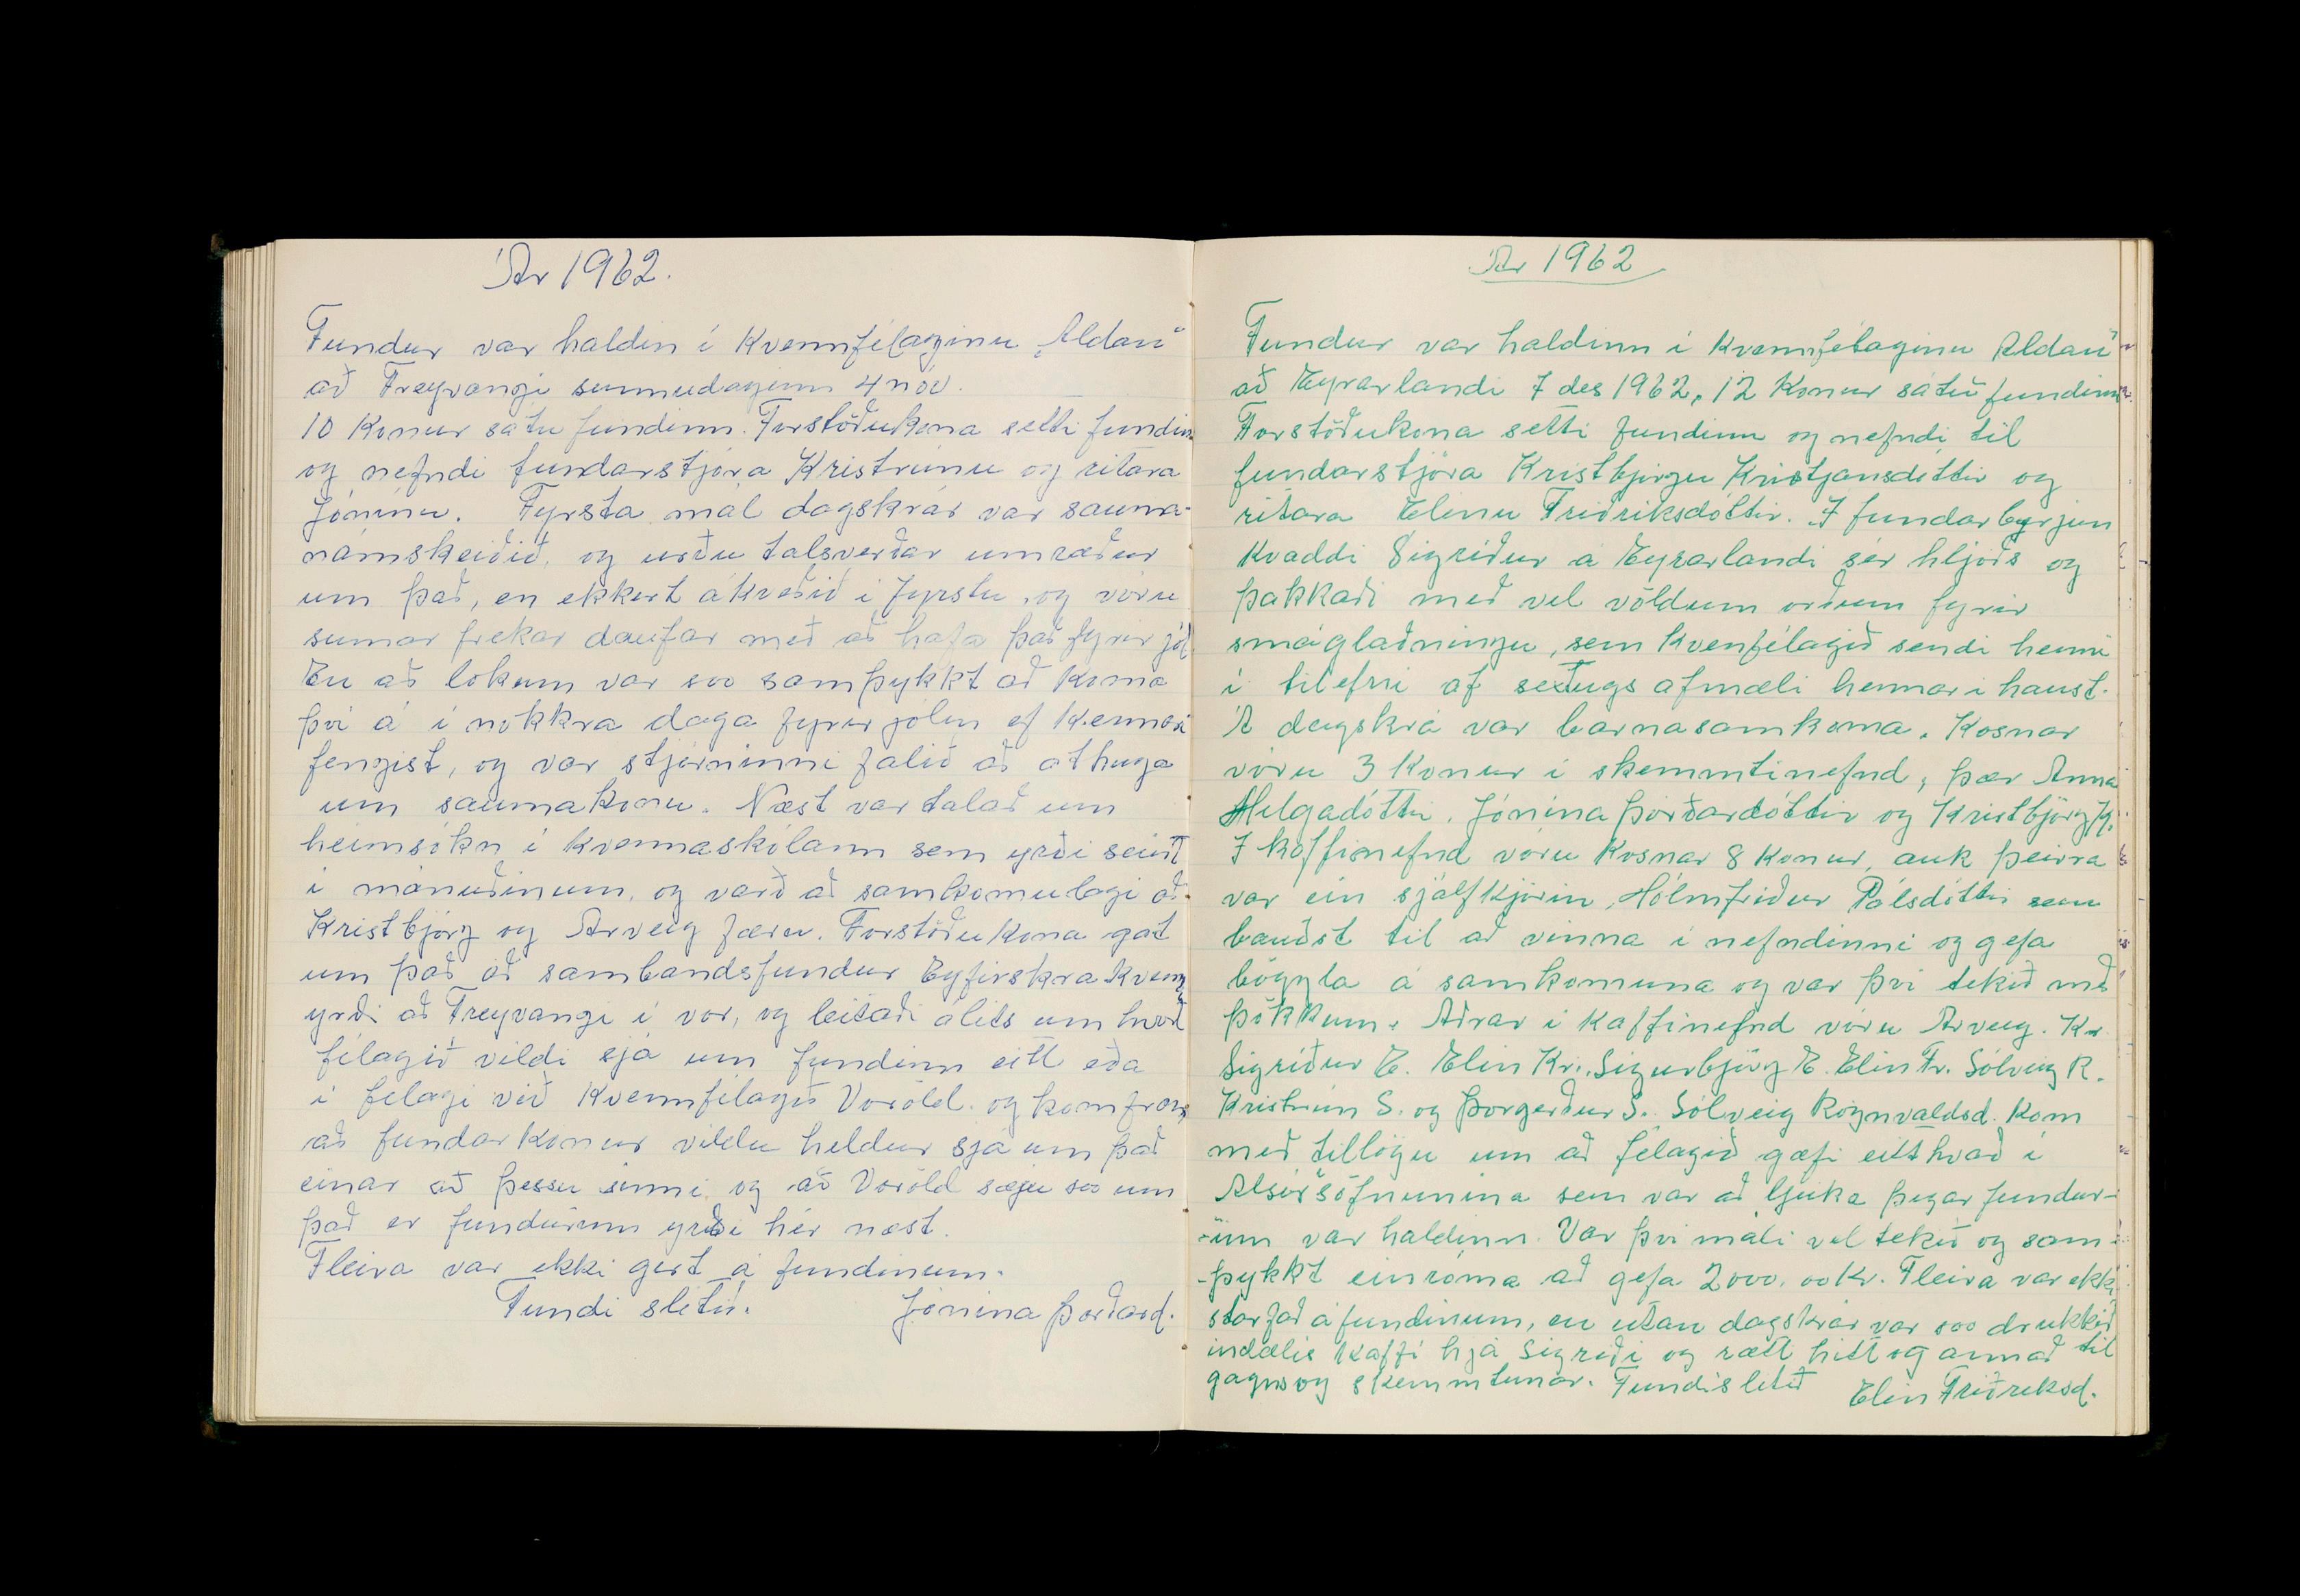 Ár 1962.
Fundur var haldin í Kvennfélaginu „Aldan"
að Freyvangi sunnudaginn 4 nóv.
10 Konur sátu fundinn. Forstöðukona setti fundinn
og nefndi fundarstjóra Kristrúnu og ritara
Jónínu. Fyrsta mál dagskrár var sauma-
námskeiðið, og urðu talsverðar umræður
um það, en ekkert ákveðið í fyrstu, og vóru
sumar frekar daufar með að hafa það fyrir jól
En að lokum var svo samþykkt að koma
því á í nokkra daga fyrir jólin ef Kennari
fengist, og var stjórninni falið að athuga
um saumakonu. Næst var talað um
heimsókn í kvennaskólann sem yrði seint
í mánuðinum, og varð að samkomulagi að
Kristbjörg og Arveig færu. Forstöðukona gat
um það að sambandsfundur Eyfirskra kvenna
yrði að Freyvangi í vor, og leitaði álits um hvort
félagið vildi sjá um fundinn eitt eða
í félagi við Kvennfélagið Voröld. og kom fram
að fundarkonur vildu heldur sjá um það
einar að þessu sinni og að Voröld sæju svo um
það er fundurinn yrði hér næst.
Fleira var ekki gert á fundinum.
Fundi slitið. Jónína Þórðard.
Ár 1962
Fundur var haldinn í Kvennfélaginu Aldan"
að Eyrarlandi 7 des 1962, 12 Konur sátu fundinn
Forstöðukona setti fundinn og nefndi til
fundarstjóra Kristbjörgu Kristjánsdóttir og
ritara Elínu Friðriksdóttir. Í fundarbyrjun
Kvaddi Sigríður á Eyrarlandi sér hljóðs og
þakkaði með vel völdum orðum fyrir
smáglaðningu, sem Kvenfélagið sendi henni
í tilefni af sextugs afmæli hennar í haust.
Á dagskrá var barnasamkoma. Kosnar
vóru 3 Konur í skemmtinefnd, þær Anna
Helgadóttir. Jónína Þórðardóttir og Kristbjörg K.
Í kaffinefnd vóru Kosnar 8 Konur, auk þeirra
var ein sjálfkjörin, Hólmfríður Pálsdóttir sem
bauðst til að vinna í nefndinni og gefa
böggla á samkomuna og var því tekið með
þökkum. Aðrar í Kaffinefnd vóru Arveig. Kr
Sigríður E. Elín Kr., Sigurbjörg E. Elín Fr. Sólveig R.
Kristrún S. og Þorgerður S. Sólveig Rögnvaldsd. Kom
með tillögu um að félagið gæfi eitthvað í
Alsírsöfnunina sem var að ljúka þegar fundur-
-inn var haldinn. Var því máli vel tekið og sam-
-þykkt einróma að gefa 2000,00 Kr. Fleira var ekki
starfað á fundinum, en utan dagskrár var svo drukkið
indælis Kaffi hjá Sigríði og rætt hitt og annað til
gagns og skemmtunar. Fundi slitið Elín Friðriksd.